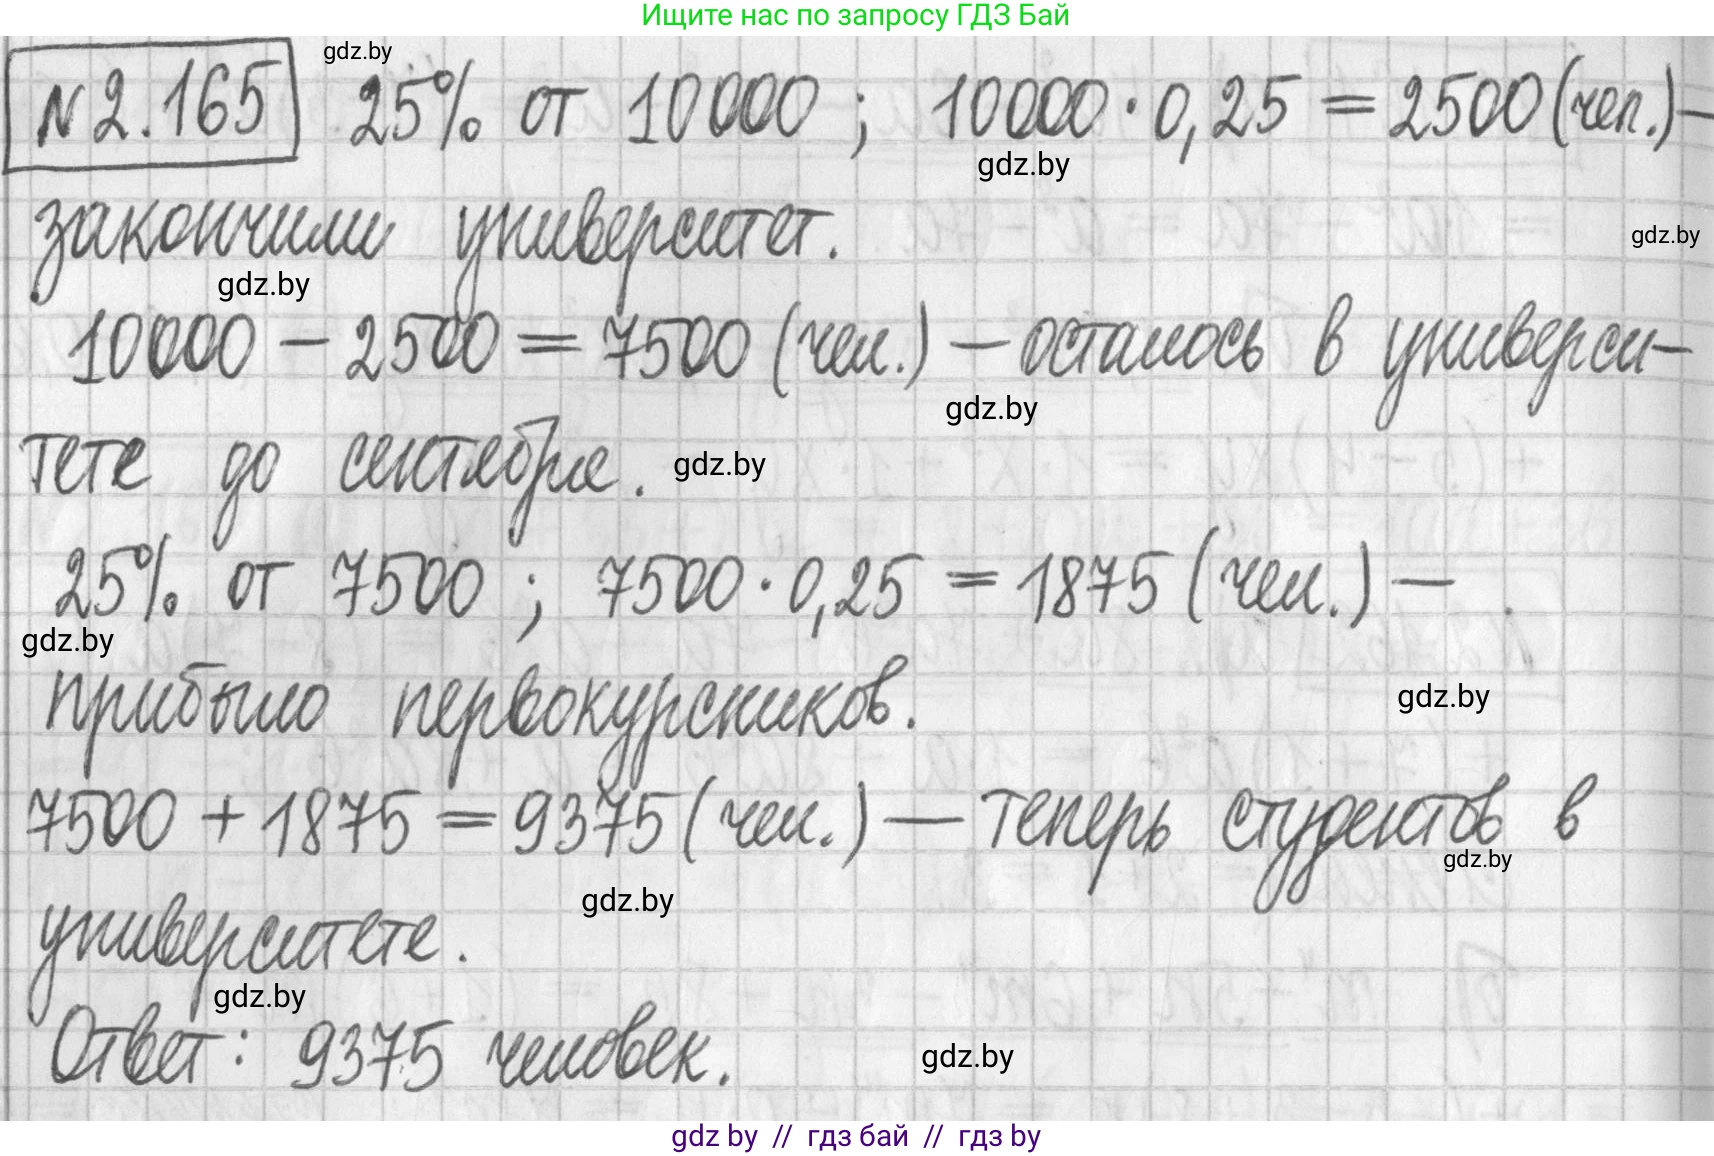 Ищите нас по запросу ГДЗ Бай
gdz.by
№2.165 25% от 10000 ; 10000 · 0,25 = 2500 (чел.) –
gdz.by
закончили университет.
gdz.by
gdz.by
10000 – 2500 = 7500 (чел.) – осталось в универси–
gdz.by
тете до сентября.
gdz.by
25% от 7500 ; 7500 · 0,25 = 1875 (чел.) –
gdz.by
прибыло первокурсников.
gdz.by
7500 + 1875 = 9375 (чел.) – теперь студентов в
gdz.by
gdz.by
университете.
gdz.by
Ответ: 9375 человек.
gdz.by
gdz by // гдз бай // гдз by